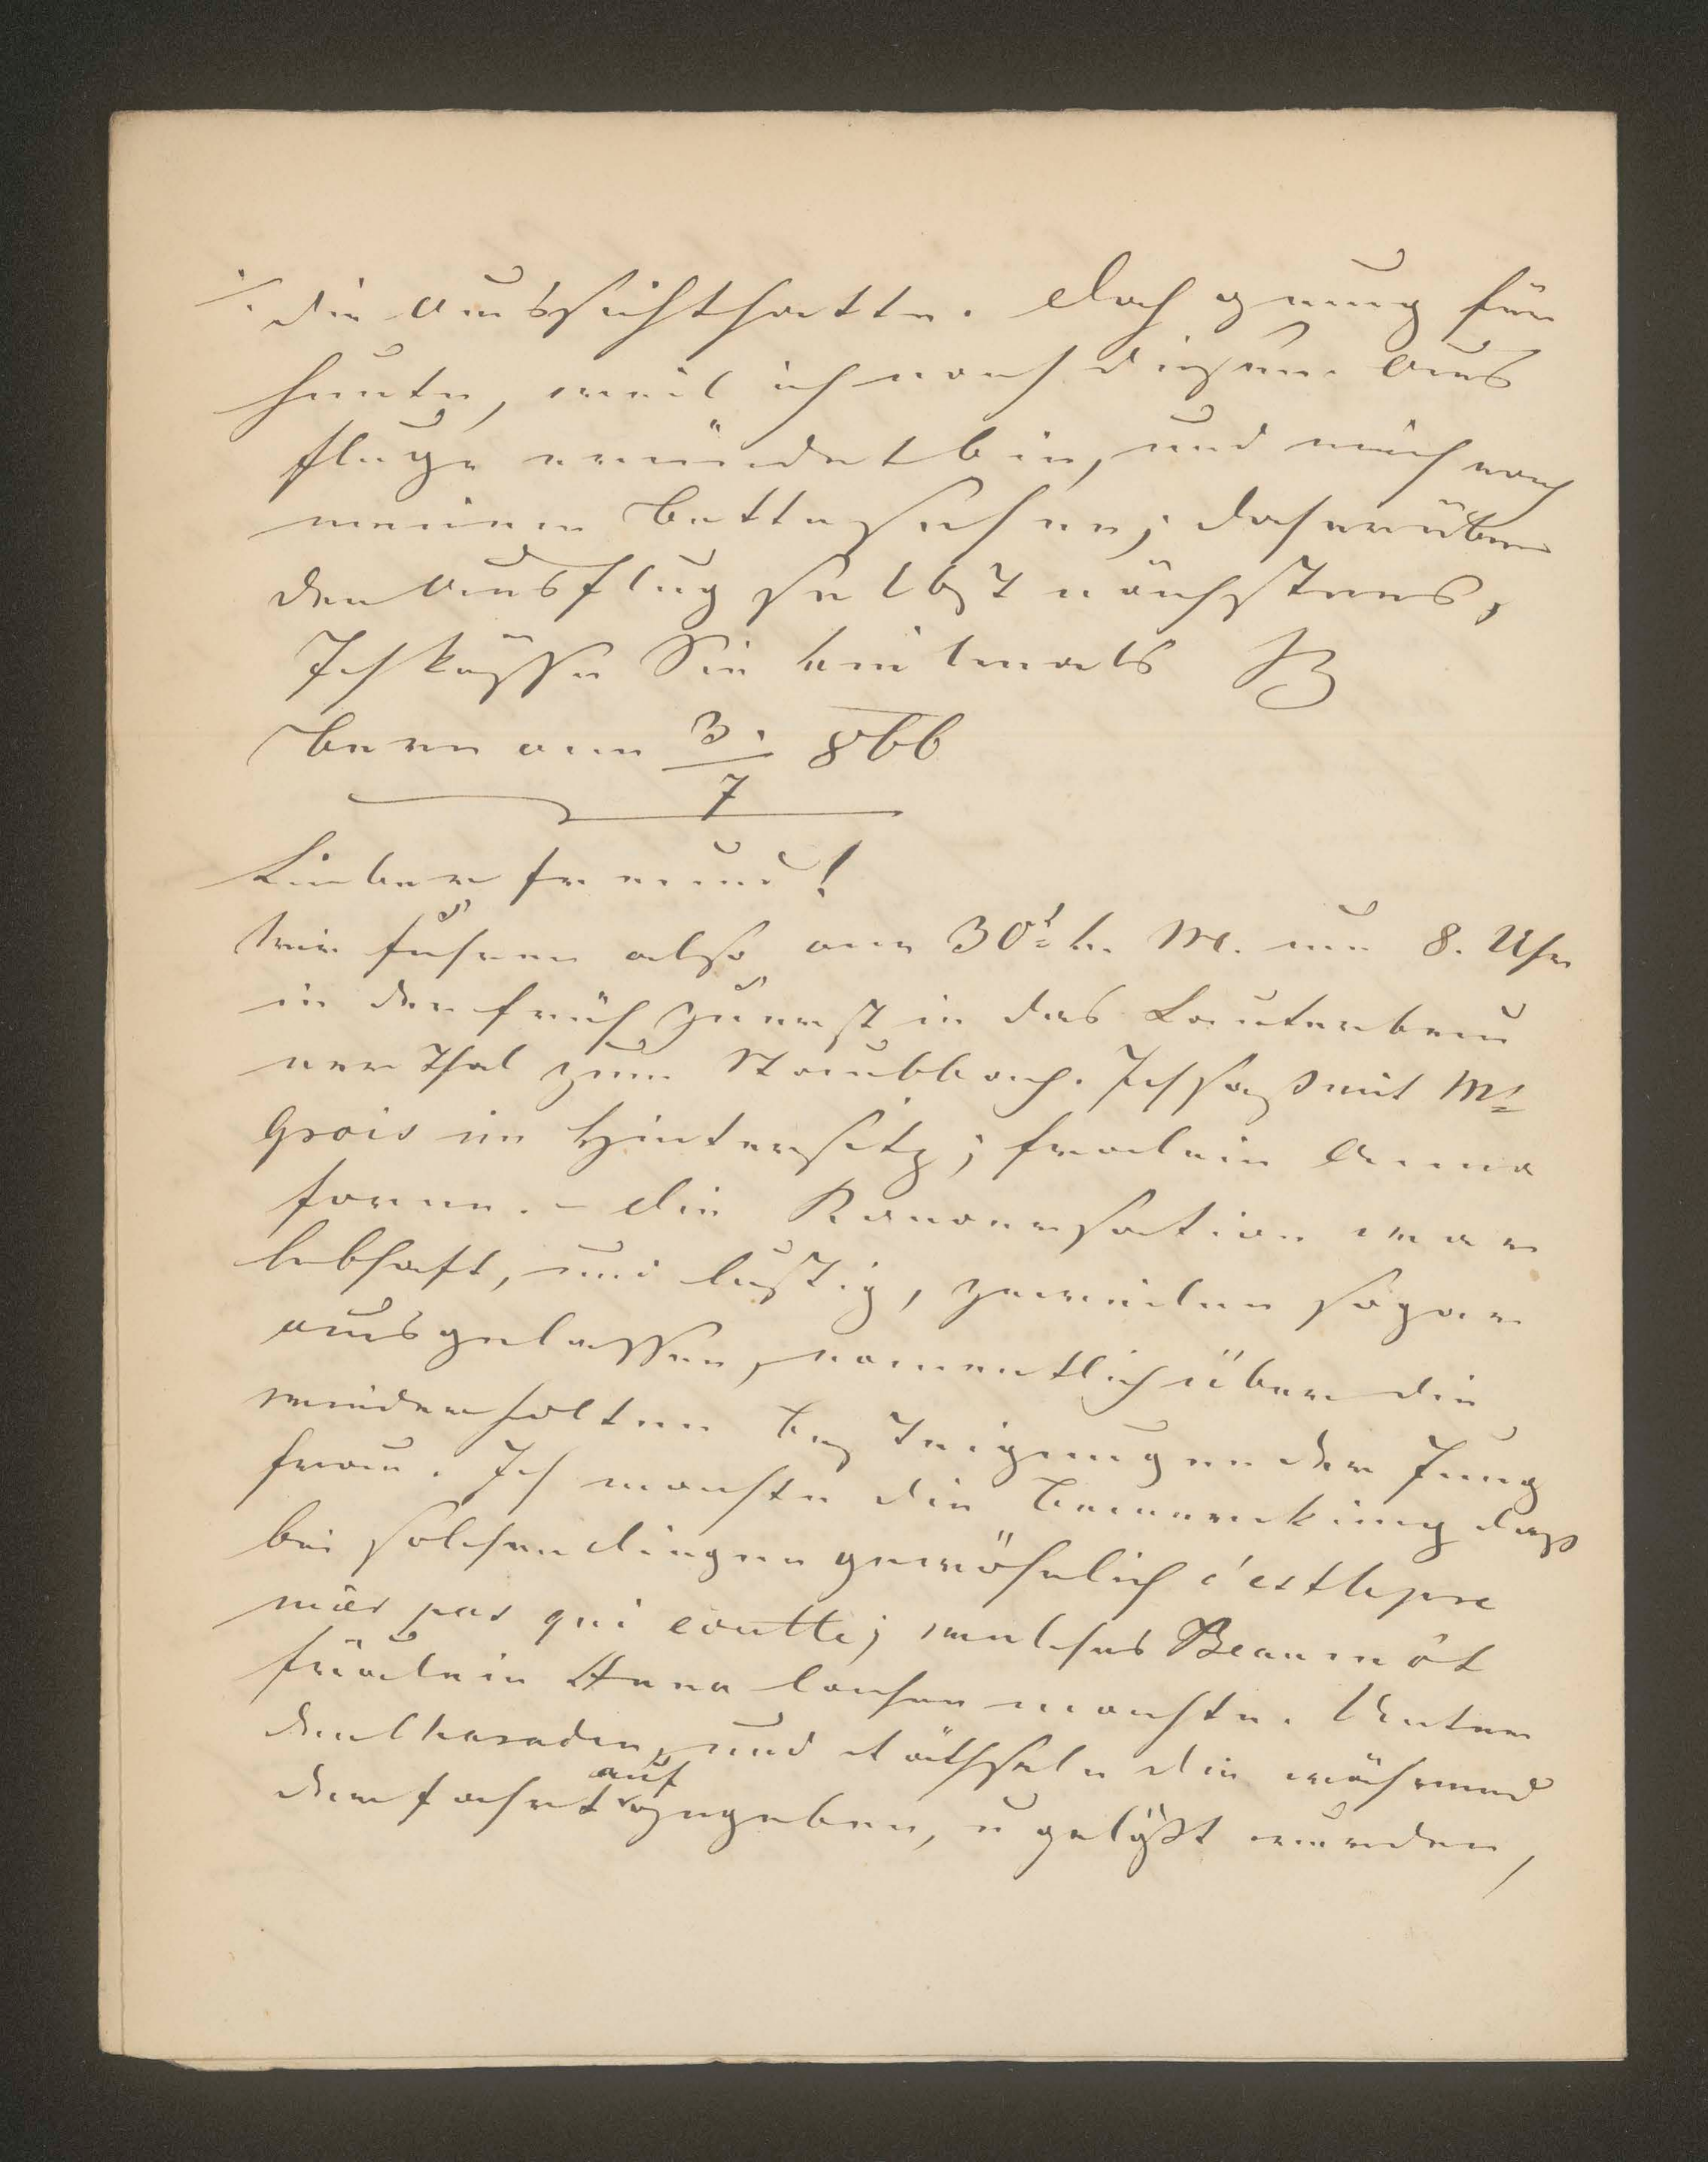 ./. die Aussicht hatte. Doch genug für
heute, weil ich nach diesem Aus
fluge ermüdet bin, und mich nach
meinem Bette sehne; daher über
den Ausflug selbst nächstens,
Ich küsse Sie vielmals B
Bern am 3./7 866
Lieber Freund!
Wir fuhren also am 30t v. M. um 8. Uhr
in der früh zuerst in das Lauterbrun
ner Thal zum Staubbach. Ich saß mit Mr
Grois im Hintersitz; Fraulein Anna
forne. – Die Konversation war
lebhaft, und lustig, zuweilen sogar
ausgelassen, namentlich über die
wiederholten Besteigungen der Jung
frau. Ich machte die Bemerkung daß
bei solchen Dingen gewöhnlich c'est le pre
mier pas qui coutte; welches Beaumôt
Fräulein Anna lachen machte. Unter
den Charaden, und Räthseln die während
der Fahrt auf gegeben, u gelößt wurden,